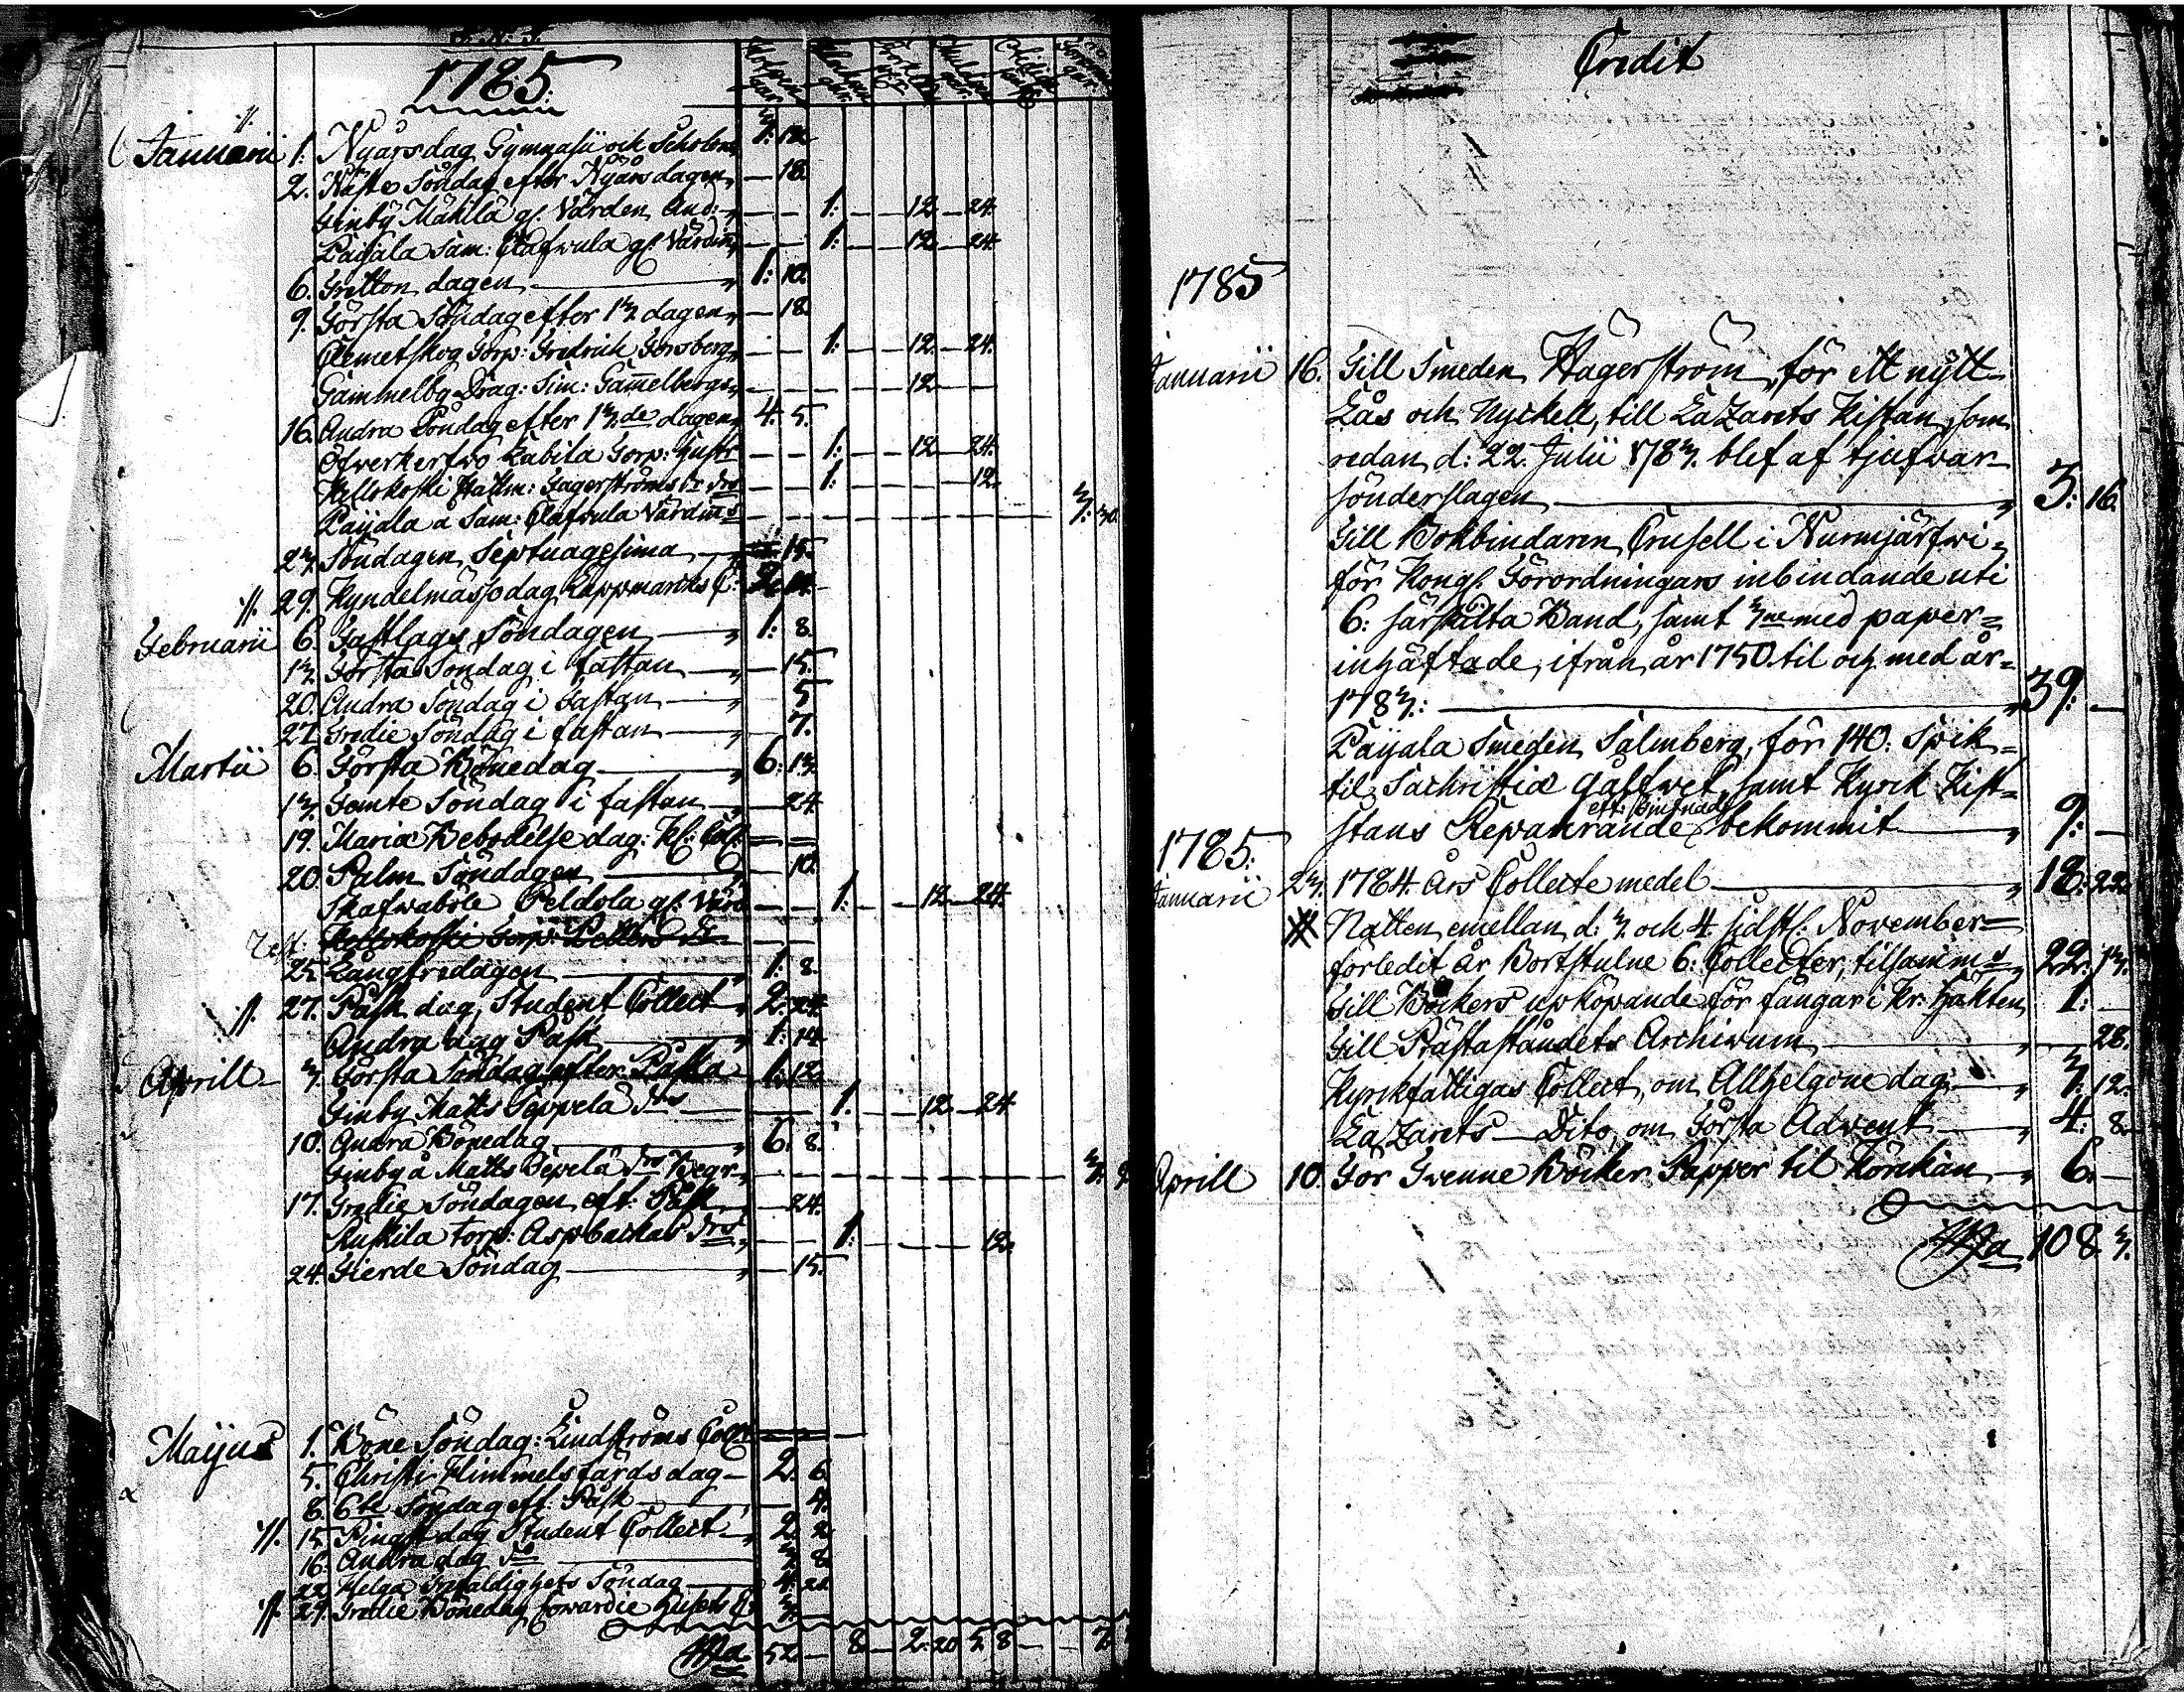 1785.
Januarii 1. Nyårsdag Gymnasii och Scholans 3: 12.
2. Näste Söndag efter Nyårsdagen — 18.
Ginby Mäkilä gl. Värden And: — — 1: — — 12 — 24.
Päijälä Sam: Olafwula gl. Värdin — — 1: — — 12 — 24.
6. Tretton dagen 1: 10.
9. Första Söndag efter 13 dagen — 18.
Clemetskog Torp: Fredrich Forsberg — — 1: — — 12 — 24.
Gammelby Drag: Sim: Gamelbergs — — — — 12 — —
16. Andra Söndag efter 13de dagen 4. 5.
Öfverkerfwo Kabila Torp: Gustr — — 1: — — 12 — 24.
Kellokoski Hakm: Lagerströms — — 1: — — — 12.
Päijälä å Sam: Olafwula Värdins — — — 3: 30.
23. Söndagen Septuagesima — 15.
29. Kyndelmässodag Lappmarks C:
Februarii 6. Fastlags Söndagen 1: 8.
13. Första Söndag i fastan — 15.
20. Andra Söndag i Fastan 5
27. Tredie Söndag i fastan 7.
Martii 6. Första Bönedag 6: 13.
13. Femte Söndag i fastan 24.
19. Maria Bebodelse dag: Kl: Coll:
20. Palm Söndagen 10.
Skafwaböle Peldola gl. Värd — — 1: — — 12 — 24.
Kellokoski Torp: Petters
25. Långfredagen 1: 8.
27. Påsk dag, Student Collect 2: 24.
Andra dag Påsk 1: 14.
Aprill 3. Första Söndag efter Påska 1: 12.
Ginby Matts Seppelä 1. — — 12 — 24
10. Andra Bönedag 6. 8.
Ginby å Matts Begr. — — — 3.
17. Tredie Söndagen eft: Påsk — 24.
Ruskila torp: Aspbackas — — 1: — — — 12.
24. Fierde Söndag — 15.
Maijus 1. Böne Söndag: Lindströms Coll:
5. Christi Himmelsfärds dag 2. 6.
8. 6te Söndag eft: Påsk — 4.
15. Pingst dag Student Collect 2.
16. Andra dag Do 3. 8.
22. Helga Trefaldighets Söndag 4. 20.
29. Tredie Bönedag Cowardie Husets C: 3.
Sma 52 — 8 — 2: 20 5. 8 — — 7
Credit
1785
Januarii 16. Till Smeden Hägerström, för ett nytt
Lås och Nyckell, till Lazarets Kistan, som
redan d: 22. Julii 1783. blef af tjufvar
sönderslagen 3: 16.
Till Bokbindaren Crusell i Nurmjärfwi
för Kongl. Förordningars inbindande uti
6: särskilta Band, samt 3ne med paper=
inhäftade, ifrån år 1750. til och med år=
1783.: 39: —
Päijälä Smeden Salmberg, för 140. Spik=
til Sachristiæ gålfwet, samt Kyrk Kist=
stans Reparerande bekommit 9: —
1785.
Januarii 23. 1784. Års Collecte medel 18: 22
Natten emellan d: 3. och 4. sidstl. November=
forledit år Bortstulne 6: Collecter, tilsammans 22: 13.
Till Böckers upköpande för fångar i Kr: häkten 1: —
Till Prästaståndets Archivum — 28.
Kyrkfattigas Collect, om Allhelgone dag 3: 12.
Lazarets — Dito, om Första Advent 4. 8.
Aprill 10. För Tvenne Böcker Papper til Körckan 6. —
Sma 108. 3.